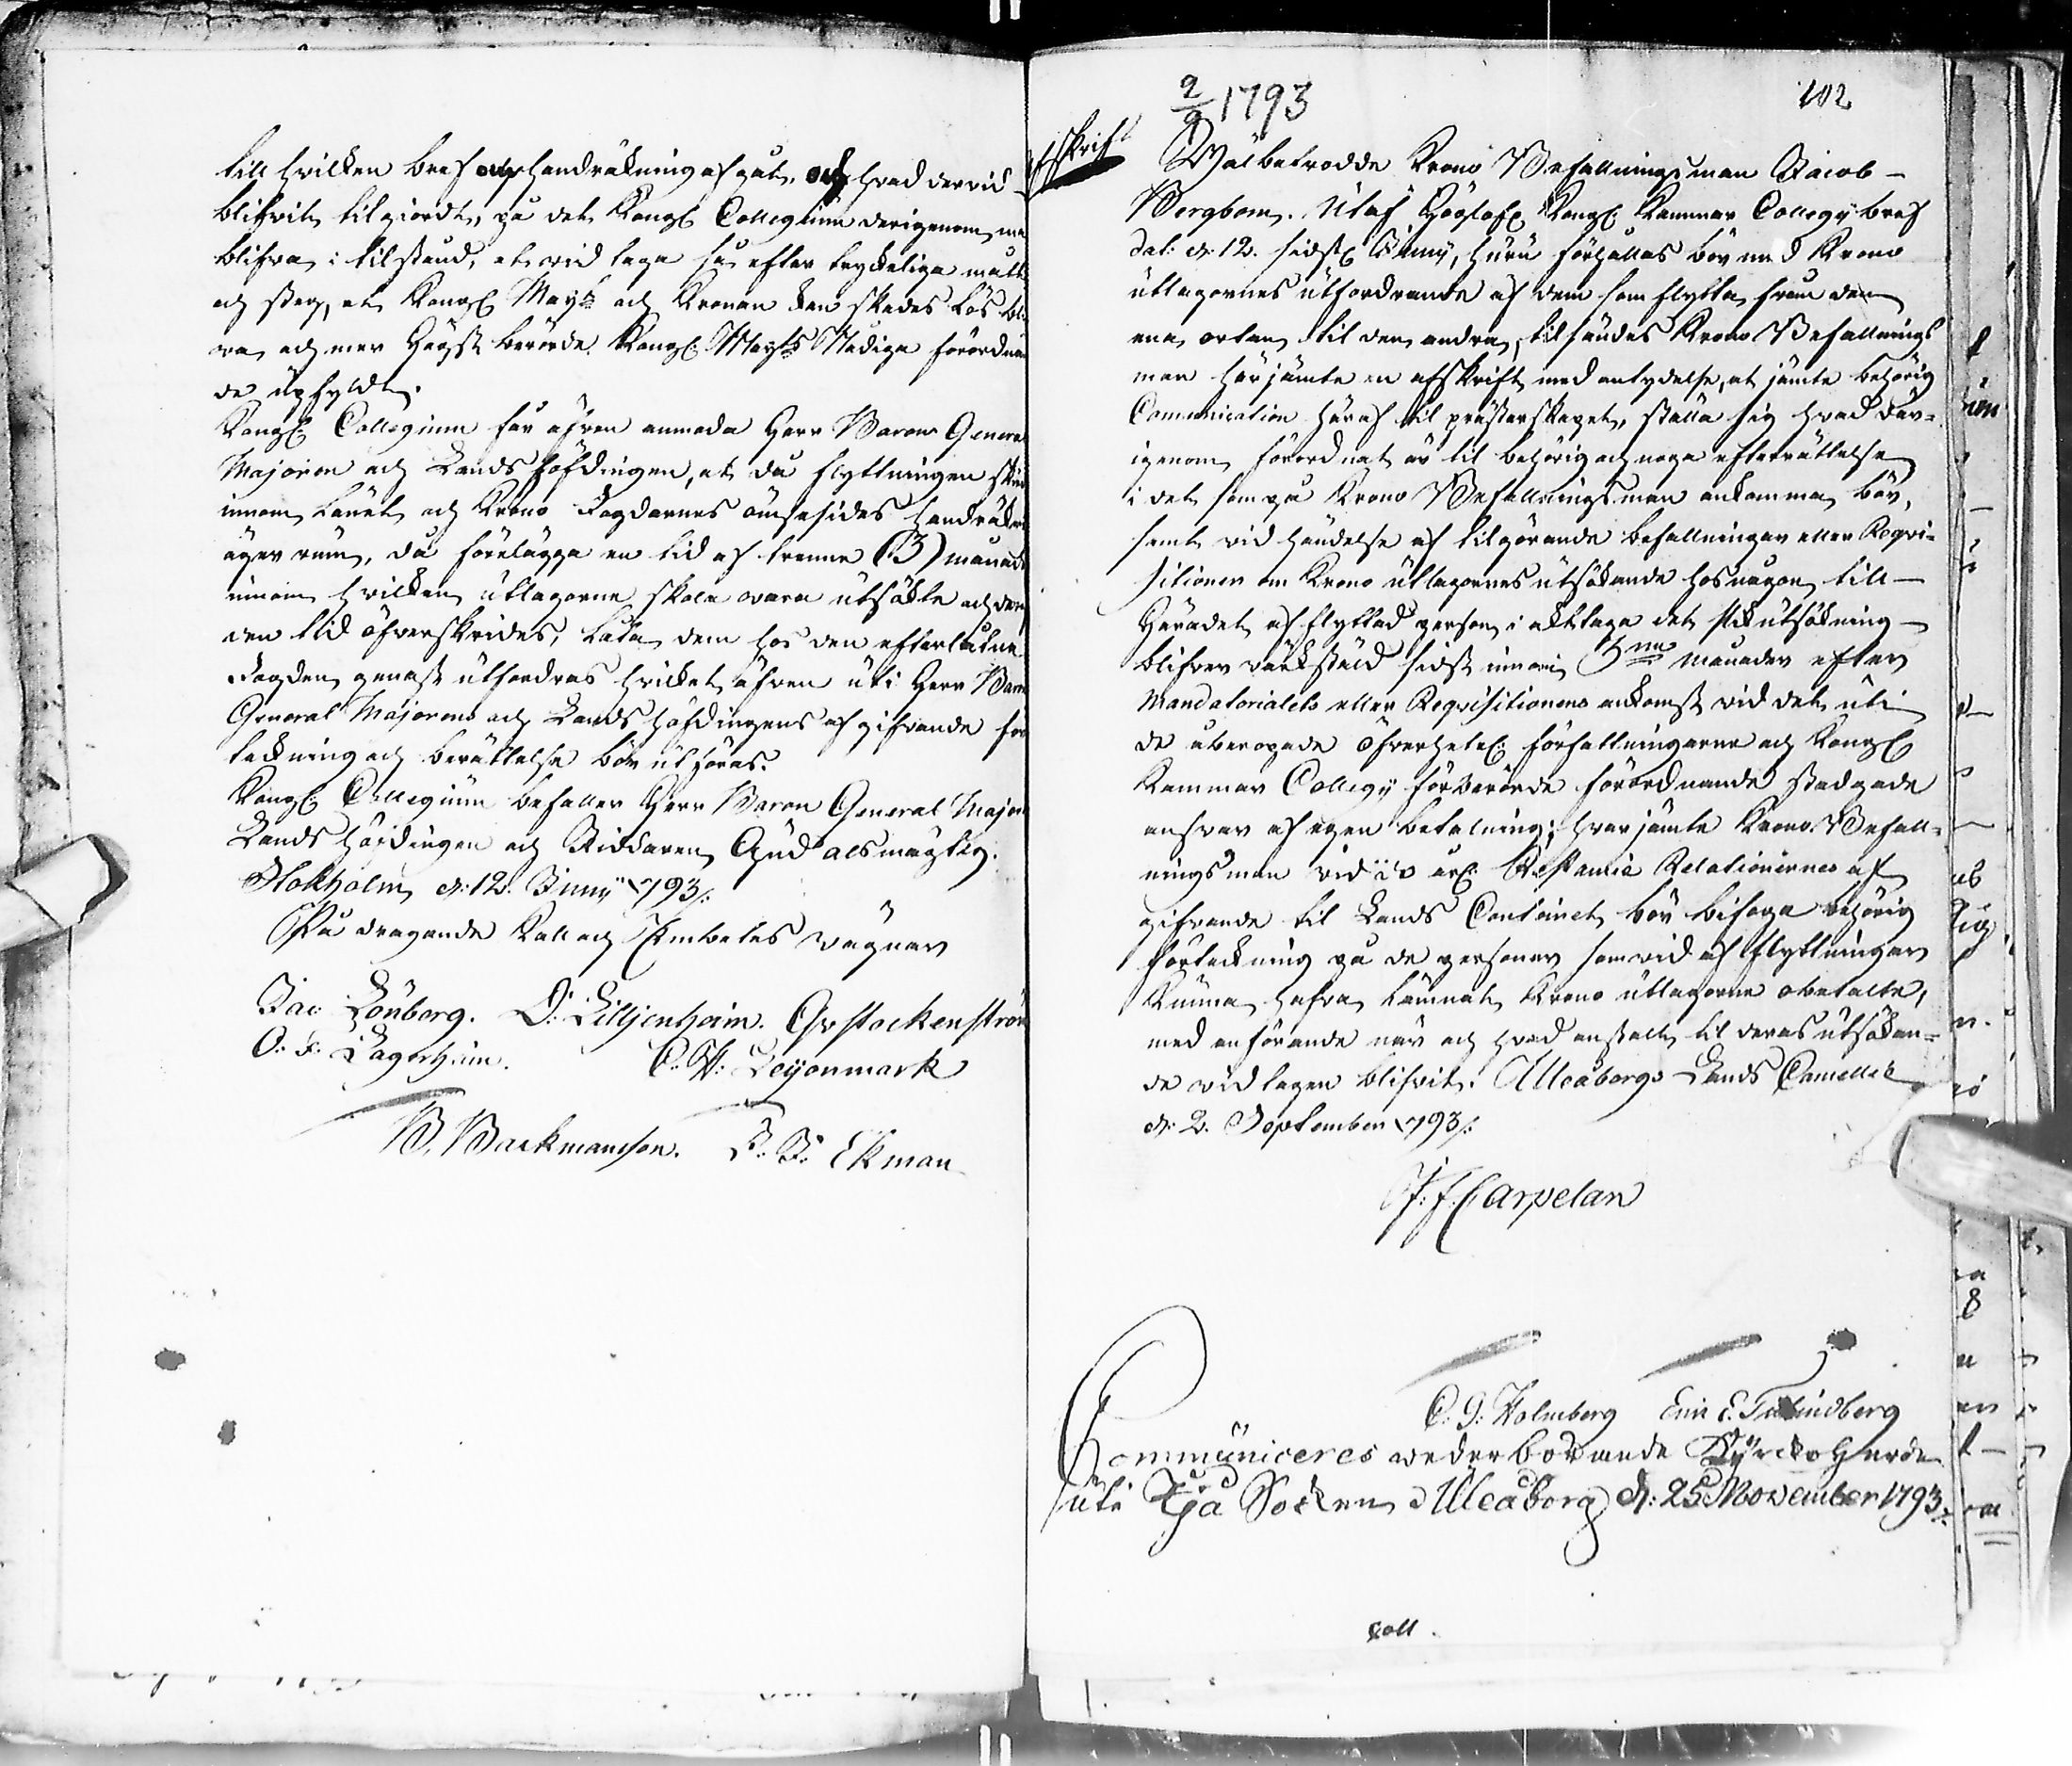 till hvilken bref och handräkning afgåt, och hvad dervid
blifvit tilgiordt, på det Kongl Collegium derigenom må
blifva i tilstånd, at vid taga så efter tryckeliga mått
och steg, at Kongl Mayts och Kronan kan skades lös bli
va, och mer högst berörde Kongl Mayts Nådiga förordnan
de upfyldt.
Kongl Collegium får äfven anmoda Herr Baron General
Majoren och Lands Höfdingen, at då flyttningen sker
innom Länet och Krono Fogdarnes ömsesides handräkning
äger rum, då förelägga en tid af trenne (3) månader
innom hvilken utlagorne skola vara utsökte och der
den tid öfverskrides, låta dem hos den efterlåtne
Fogden genast utfordras hvilket äfven uti Herr Baron
General Majorens och Lands Höfdingens afgifvande för
teckning och berättelse bör utföras.
Kongl Collegium befaller Herr Baron General Majoren
Lands Höfdingen och Riddaren Gud alsmägtig.
Stokholm d: 12. Junii 1793/:
På dragande Kall och Embetes vägnar
Jac Lönberg. D: Liljenheim. G v Stockenström
O. F: Lagerheim. C. H: Leijonmark
B. Backmansson. Ekman
2/9 1793
102
Afskrift
Wälbetrodde Krono Befallningsman Jacob
Bergbom. Utaf Höglofl Kongl Kammar Collegii bref
dat: d: 12. sidstl Junii, huru förhållas bör med Krono
utlagornes utfordrande af dem som flytta från den
ena orten til den andra, tilsändes Krono Befallnings
man härjämte en afskrift med antydelse, at jämte behörig
Communication häraf til prästerskapet, ställa sig hvad där-
igenom förordnat är til behörig och noga efterrättelse
i det som på Krono Befallningsman ankomma bör,
samt vid händelse af tilgörande befallningar eller Reqvi-
sitioner om Krono utlagornes utsökande hos någon till
Häradet afflyttad person i akttaga det slik utsökning
blifver värkstäld sidst innom 3ne månader efter
Mandatorialets eller Reqvisitionens ankomst vid det uti
de åberopade Öfverhetel: författningarne och Kongl
Kammar Collegii förberörde förordnande stadgade
ansvar af egen betalning; hvarjämte Krono Befall-
ningsman vid årl: Restantie Relationernes af
gifvande til Lands Contoiret bör bifoga behörig
förteckning på de personer som vid afflyttningar
kunna hafva lämnat Krono utlagorne obetalte,
med anförande när och hvad anstalt til deras utsökan-
de vidtagen blifvit. Uleåborgs Lands Cancellie
d: 2. September 1793/:
J: F: Carpelan
C. G: Holmberg Eric E. Tulindberg
Communiceres wederbörande Kyrcko Herde
uti Ijå Socken Uleåborg d: 25 November 1793